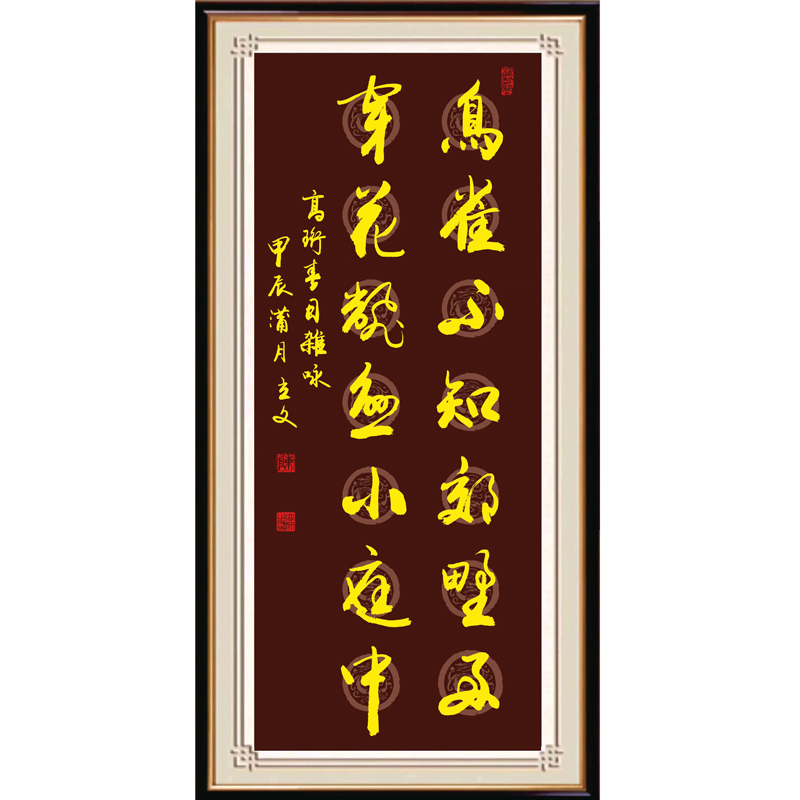 鳥雀不知郊野好
穿花飜戀小庭中
高珩春日雜咏
甲辰蒲月立文